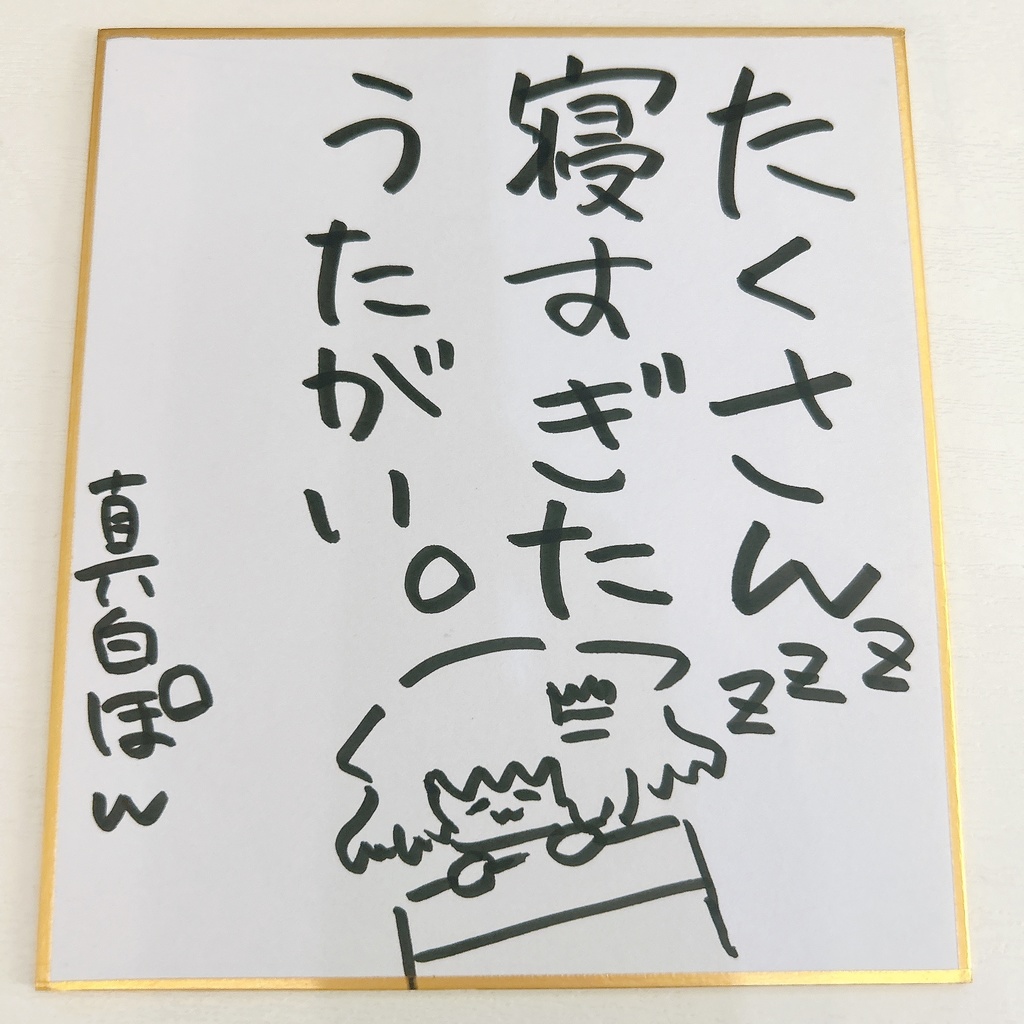 たくさん
寝すぎた
うたがい。
zzz
真白ぽん